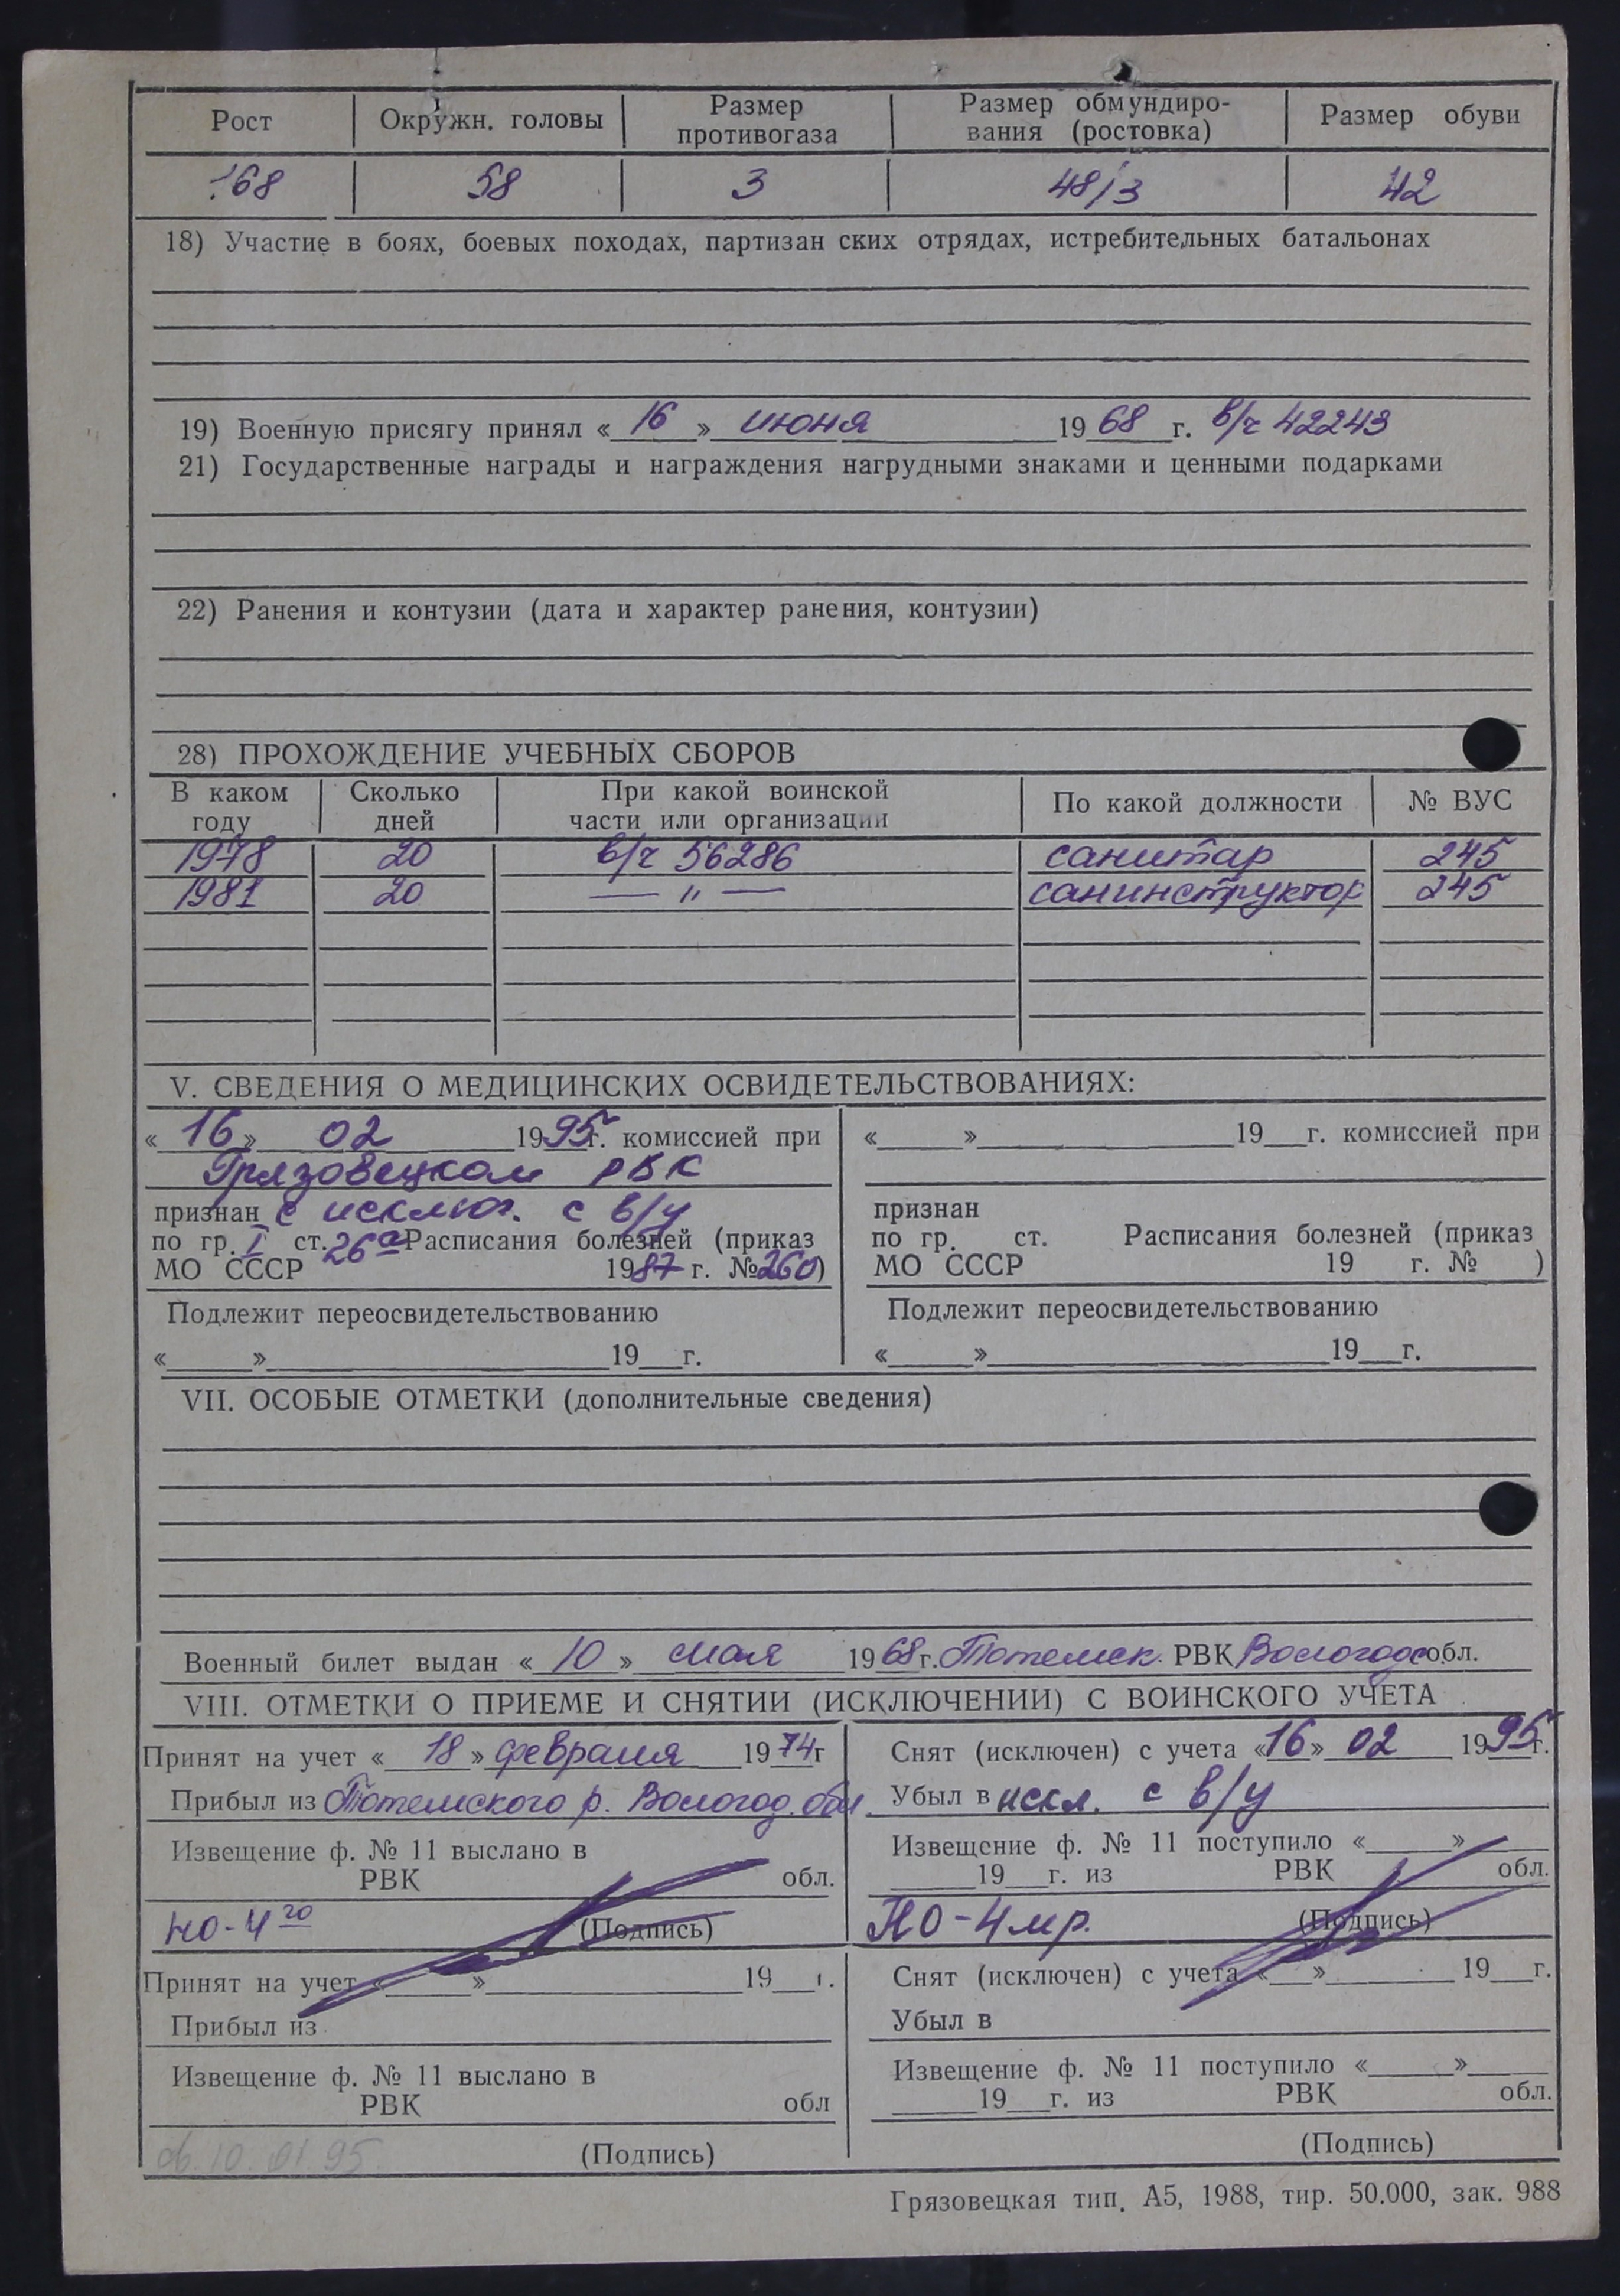 Рост Окружн. головы Размер противогаза Размер обмундиро-вания (ростовка) Размер обуви
168 58 3 48/3 42
18) Участие в боях, боевых походах, партизан ских отрядах, истребительных батальонах
19) Военную присягу принял «16» июня 1968 г. в/ч 42243
21) Государственные награды и награждения нагрудными знаками и ценными подарками
22) Ранения и контузии (дата и характер ранения, контузии)
28) ПРОХОЖДЕНИЕ УЧЕБНЫХ СБОРОВ
В каком году Сколько дней При какой воинской части или организации По какой должности № ВУС
1978 20 в/ч 56286 санитар 245
1981 20 — " — санинструктор 245
V. СВЕДЕНИЯ О МЕДИЦИНСКИХ ОСВИДЕТЕЛЬСТВОВАНИЯХ:
«16» 02 1995г. комиссией при
Грязовецком РВК
признан с исключ. с в/у
по гр. I ст. 26а Расписания болезней (приказ
МО СССР 1987 г. №260)
Подлежит переосвидетельствованию
« » 19 г.
« » 19 г. комиссией при
признан
по гр. ст. Расписания болезней (приказ
МО СССР 19 г. № )
Подлежит переосвидетельствованию
« » 19 г.
VII. ОСОБЫЕ ОТМЕТКИ (дополнительные сведения)
Военный билет выдан «10» мая 1968г. Тотемск. РВК Вологодс обл.
VIII. ОТМЕТКИ О ПРИЕМЕ И СНЯТИИ (ИСКЛЮЧЕНИИ) С ВОИНСКОГО УЧЕТА
Принят на учет «18» февраля 1974г
Прибыл из Тотемского р. Вологод. обл.
Извещение ф. № 11 выслано в
РВК обл.
НО-4 го (Подпись)
Снят (исключен) с учета «16» 02 1995г.
Убыл в искл. с в/у
Извещение ф. № 11 поступило « »
19 г. из РВК обл.
НО-4 мр. (Подпись)
Принят на учет « » 19 г.
Прибыл из
Извещение ф. № 11 выслано в
РВК обл
(Подпись)
Снят (исключен) с учета « » 19 г.
Убыл в
Извещение ф. № 11 поступило « »
19 г. из РВК обл.
(Подпись)
10.01.95.
Грязовецкая тип. А5, 1988, тир. 50.000, зак. 988